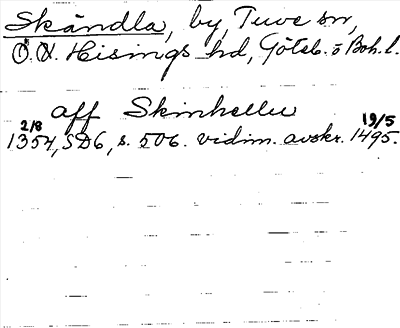 Skändla, by, Tuve sn,
Ö. o. V. Hisings hd, Göteb. o Boh. l.
aff Skinhellu
2/8 19/5
1354, SD6, s. 506. vidim. avskr. 1495.